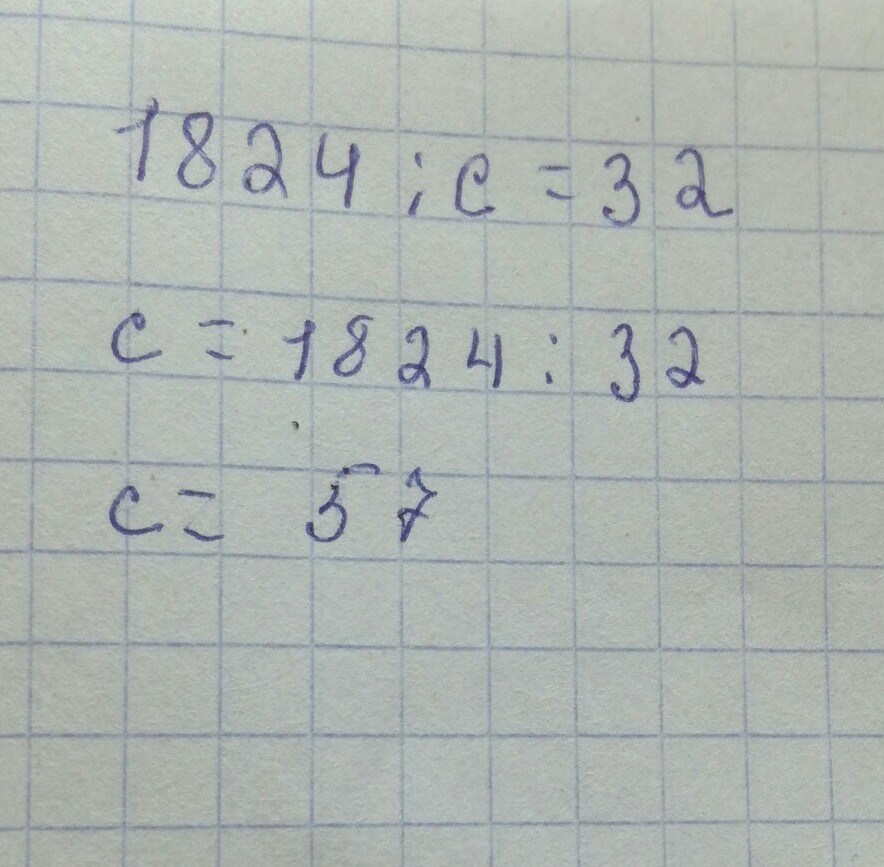 1824 : c = 32
c = 1824 : 32
c = 57